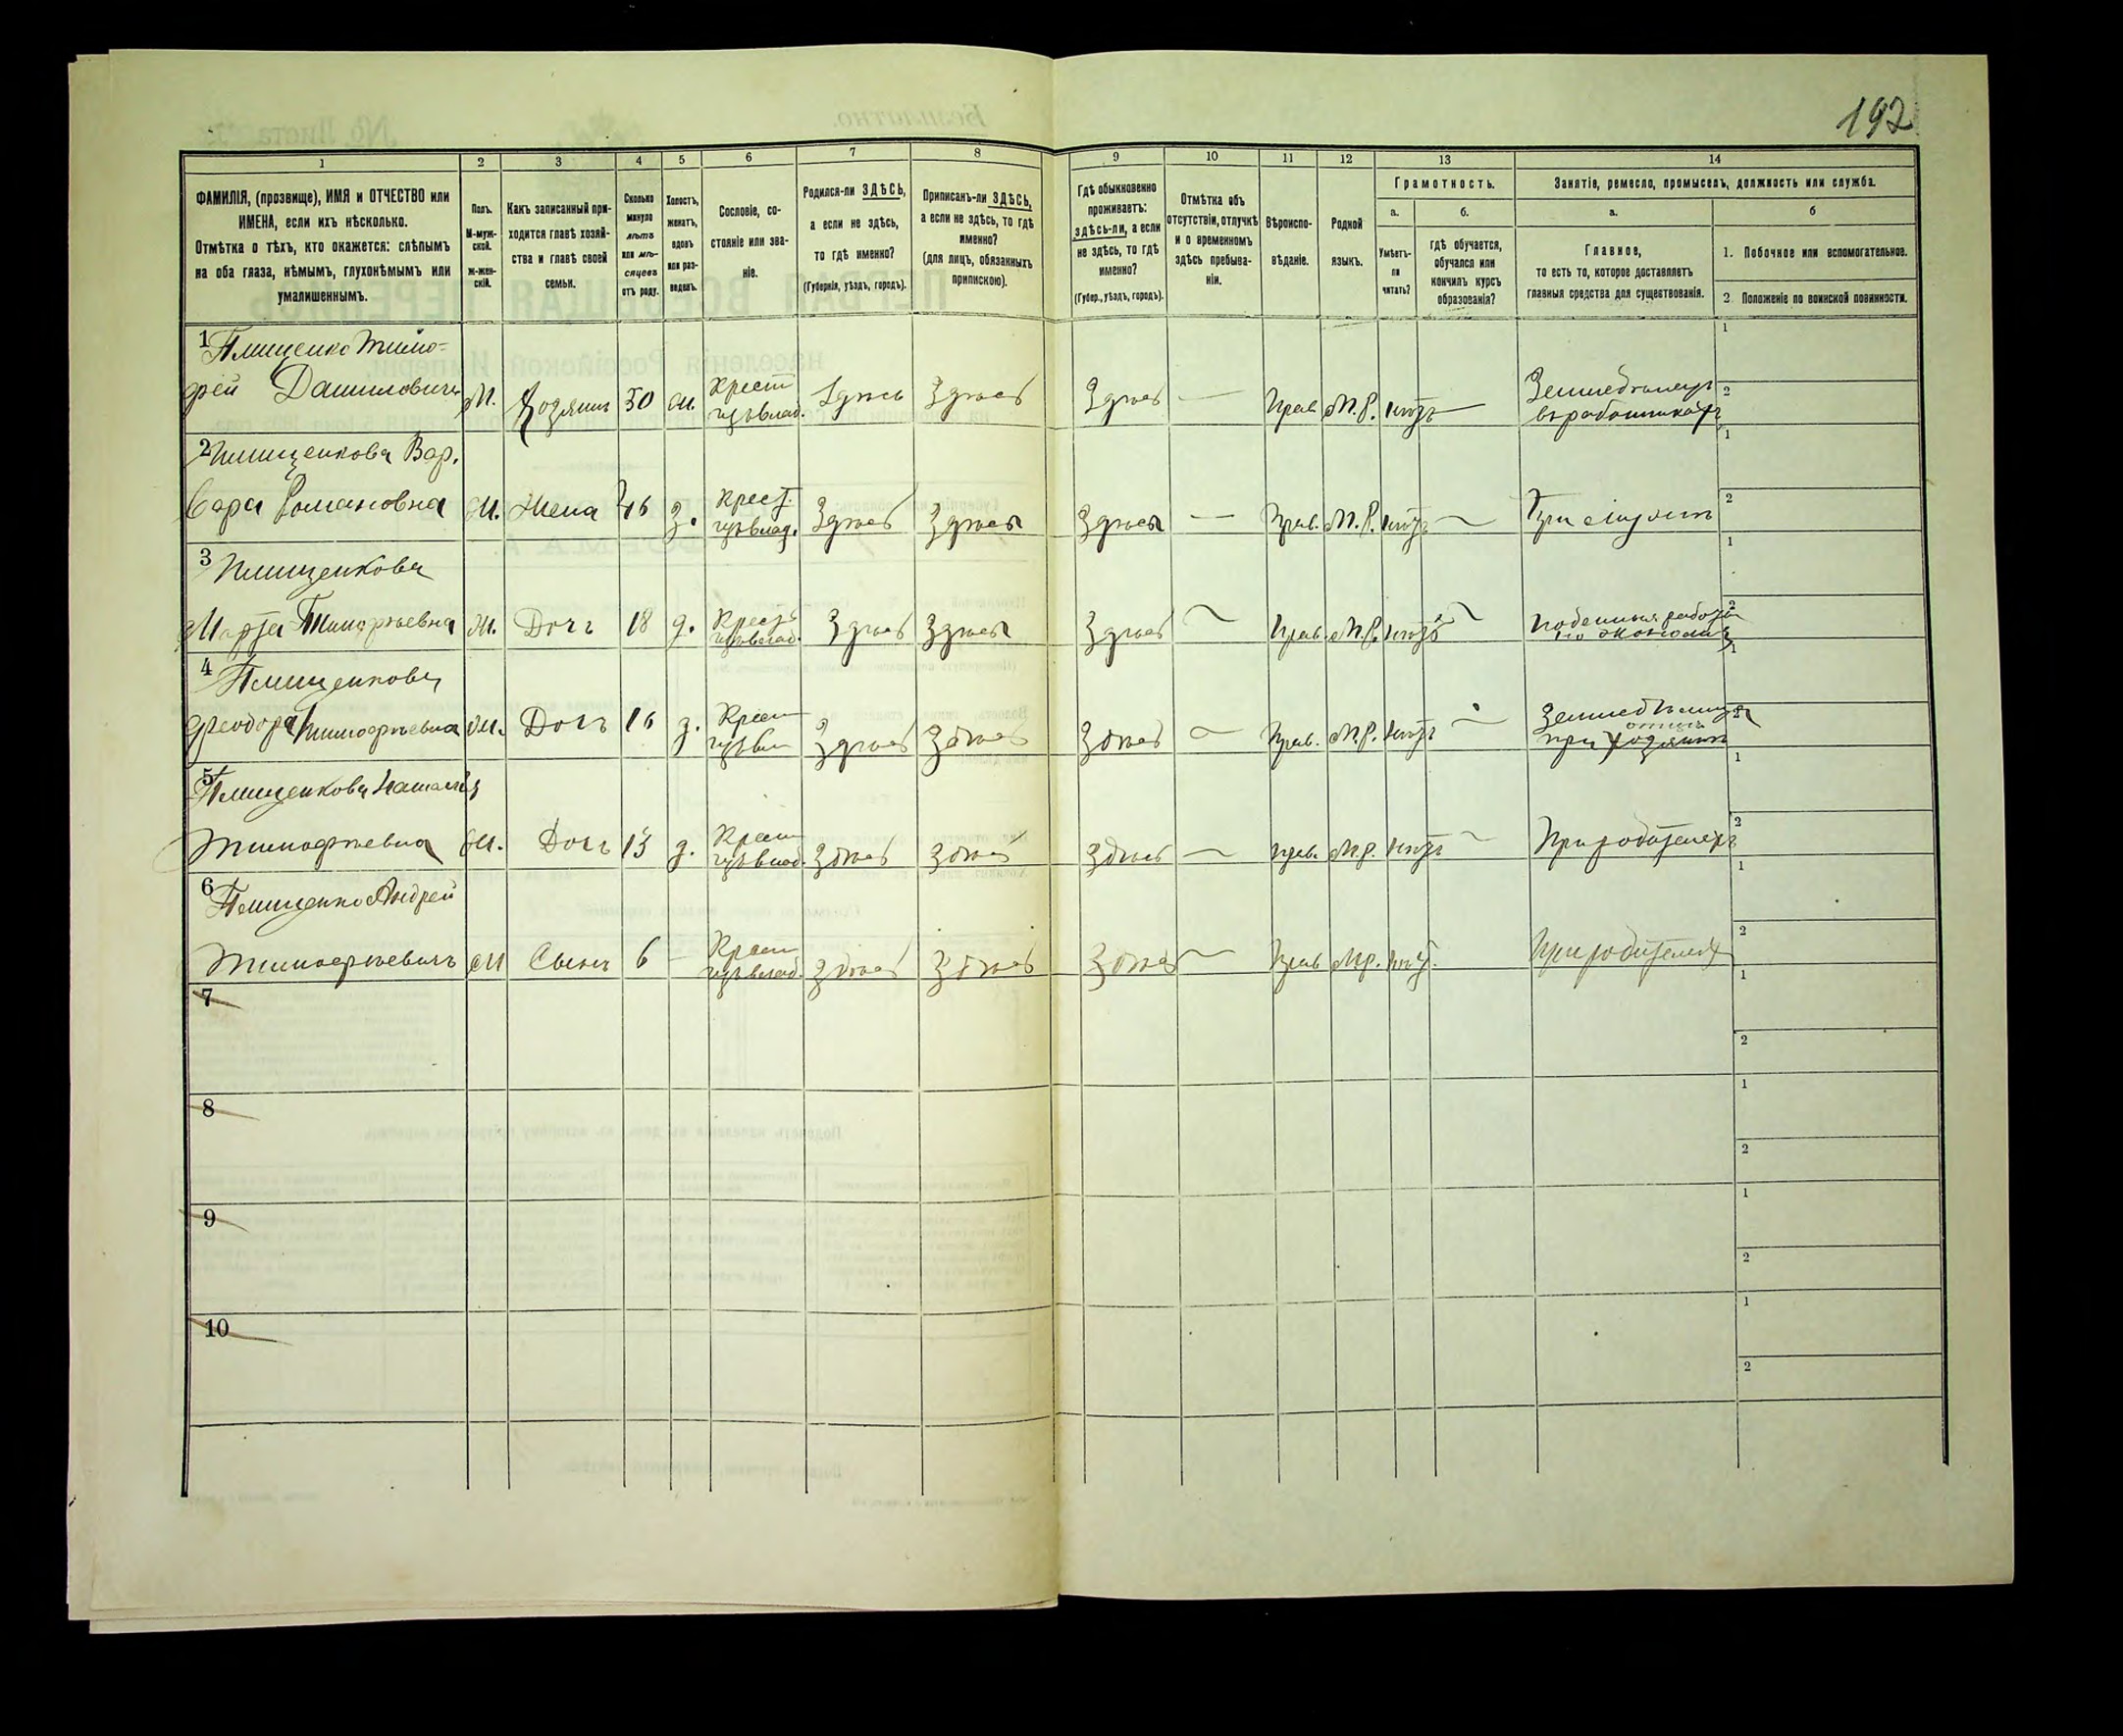 192
1 2 3 4 5 6 7 8 9 10 11 12 13 14
ФАМИЛІЯ, (прозвище), ИМЯ и ОТЧЕСТВО или
ИМЕНА, если ихъ нѣсколько.
Отмѣтка о тѣхъ, кто окажется: слѣпымъ
на оба глаза, нѣмымъ, глухонѣмымъ или
умалишеннымъ.
Полъ.
М-муж-
ской.
ж-жен-
скій.
Какъ записанный при-
ходится главѣ хозяй-
ства и главѣ своей
семьи.
Сколько
минуло
лѣтъ
или мѣ-
сяцевъ
отъ роду.
Холостъ,
женатъ,
вдовъ
или раз-
веденъ.
Сословіе, со-
стояніе или зва-
ніе.
Родился-ли ЗДѢСЬ,
а если не здѣсь,
то гдѣ именно?
(Губернія, уѣздъ, городъ).
Приписанъ-ли ЗДѢСЬ,
а если не здѣсь, то гдѣ
именно?
(для лицъ, обязанныхъ
припискою).
Гдѣ обыкновенно
проживаетъ:
здѣсь-ли, а если
не здѣсь, то гдѣ
именно?
(Губер., уѣздъ, городъ).
Отмѣтка объ
отсутствіи, отлучкѣ
и о временномъ
здѣсь пребыва-
ніи.
Вѣроиспо-
вѣданіе.
Родной
языкъ.
Грамотность.
а.
Умѣетъ-
ли
читать?
б.
гдѣ обучается,
обучался или
кончилъ курсъ
образованія?
Занятіе, ремесло, промыселъ, должность или служба.
а.
Главное,
то есть то, которое доставляетъ
главныя средства для существованія.
б
1. Побочное или вспомогательное.
2. Положеніе по воинской повинности.
1 Плищенко Тимо-
фей Даниловичъ М. Хозяинъ 50 ж. Крест. изъ влад. Здѣсь Здѣсь Здѣсь — Прав. М.Р. нѣтъ — Земледѣлецъ
въ работникахъ
2 Плищенкова Вар.
вара Романовна Ж. Жена 46 з. Крест. изъ влад. Здѣсь Здѣсь Здѣсь — Прав. М.Р. нѣтъ — При мужѣ
3 Плищенкова
Марфа Тимофѣевна Ж. Дочь 18 д. Крест. изъ влад. Здѣсь Здѣсь Здѣсь — Прав. М.Р. нѣтъ — Поденныя работы
4 Плищенкова
Феодора Тимофѣевна Ж. Дочь 16 д. Крест. Здѣсь Здѣсь Здѣсь — Прав. М.Р. нѣтъ —
при хозяинѣ
5 Плищенкова Наталія
Тимофѣевна Ж. Дочь 13 д. Крест. изъ влад. Здѣсь Здѣсь Здѣсь — Прав. М.Р. нѣтъ — При родителяхъ
6 Плищенко Андрей
Тимофѣевичъ М Сынъ 6 — Крест. изъ влад. Здѣсь Здѣсь Здѣсь — Прав М.Р. нѣт. При родителяхъ
7
8
9
10